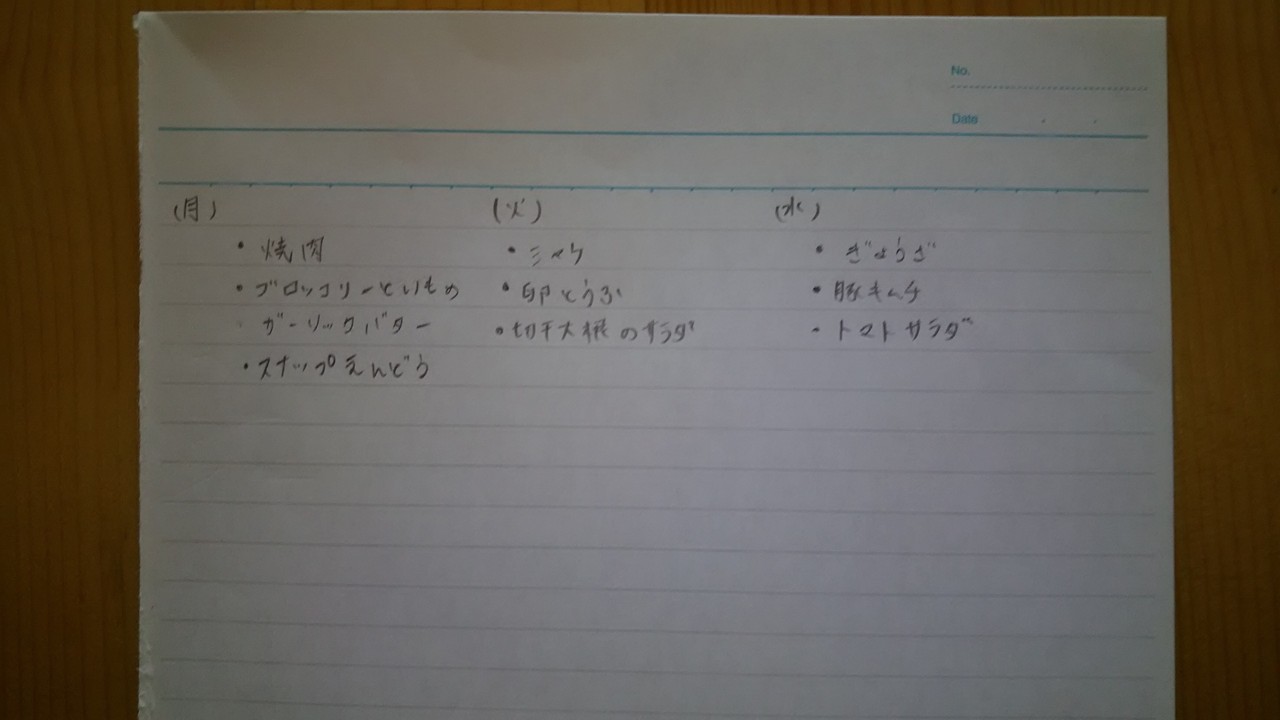 No.
Date
(月)
・焼肉
・ブロッコリーといもの
ガーリックバター
・スナップえんどう
(火)
・卵とうふ
・切干大根のサラダ
(水)
・ぎょうざ
・豚キムチ
・トマトサラダ